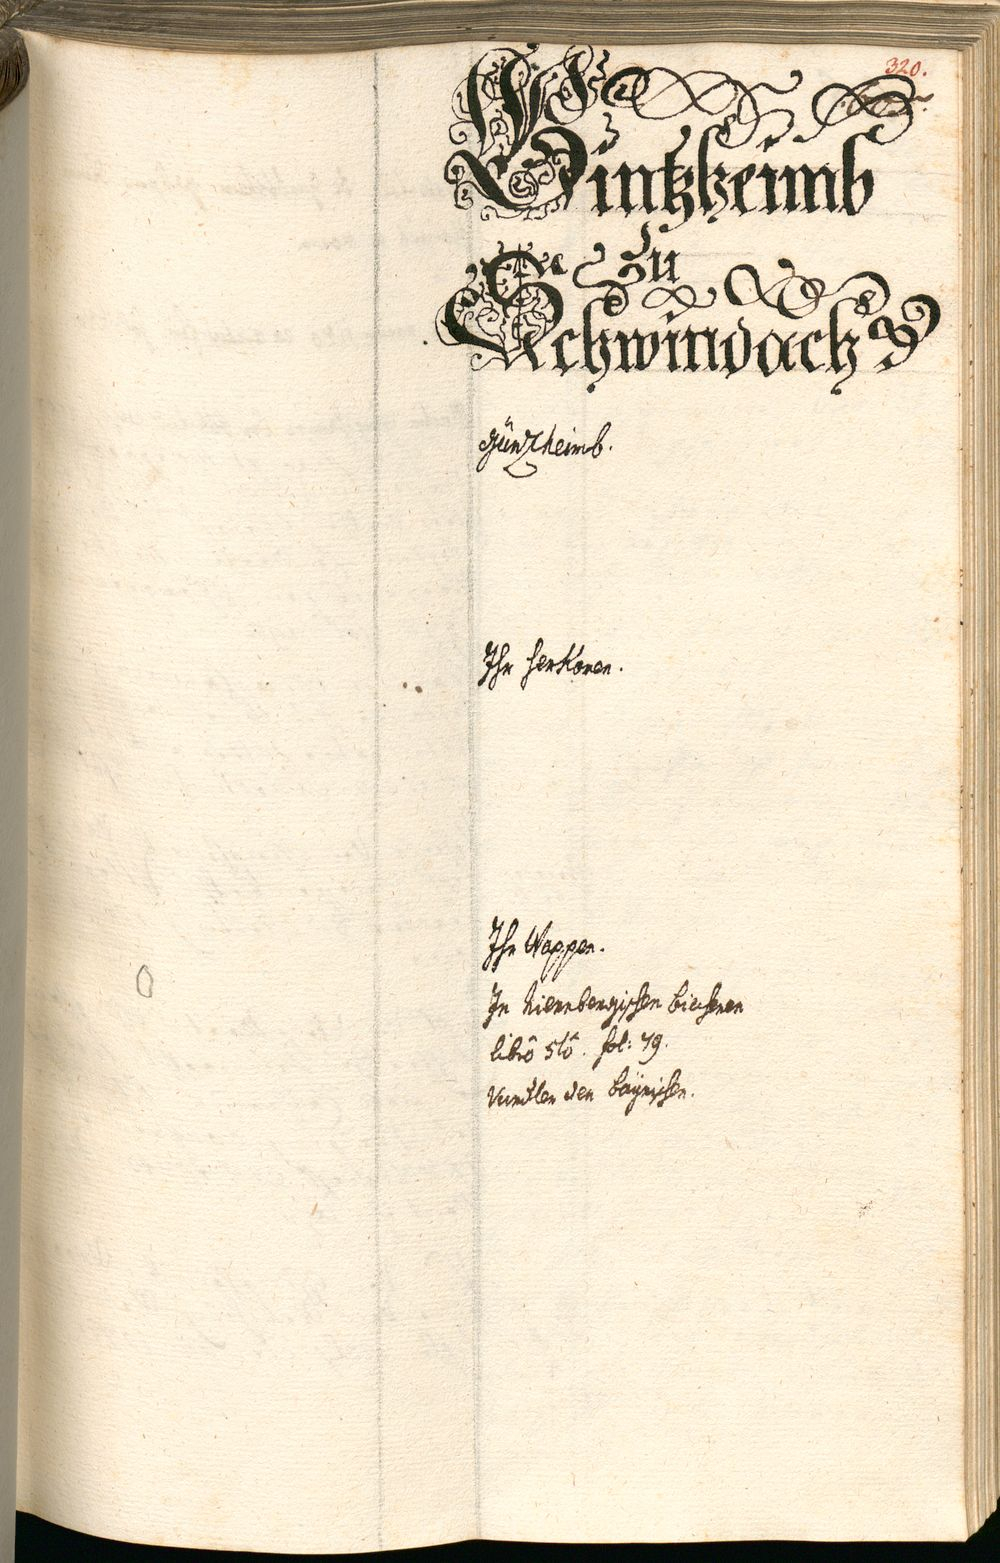 320.
Gintzheimb
Zu
Schwindach
Güntzheimb.
Ihr herkomen.
Ihr Wappen.
In Niernbergischen biecheren
librô 5tô. fol: 79.
Vundter den bayrischen.